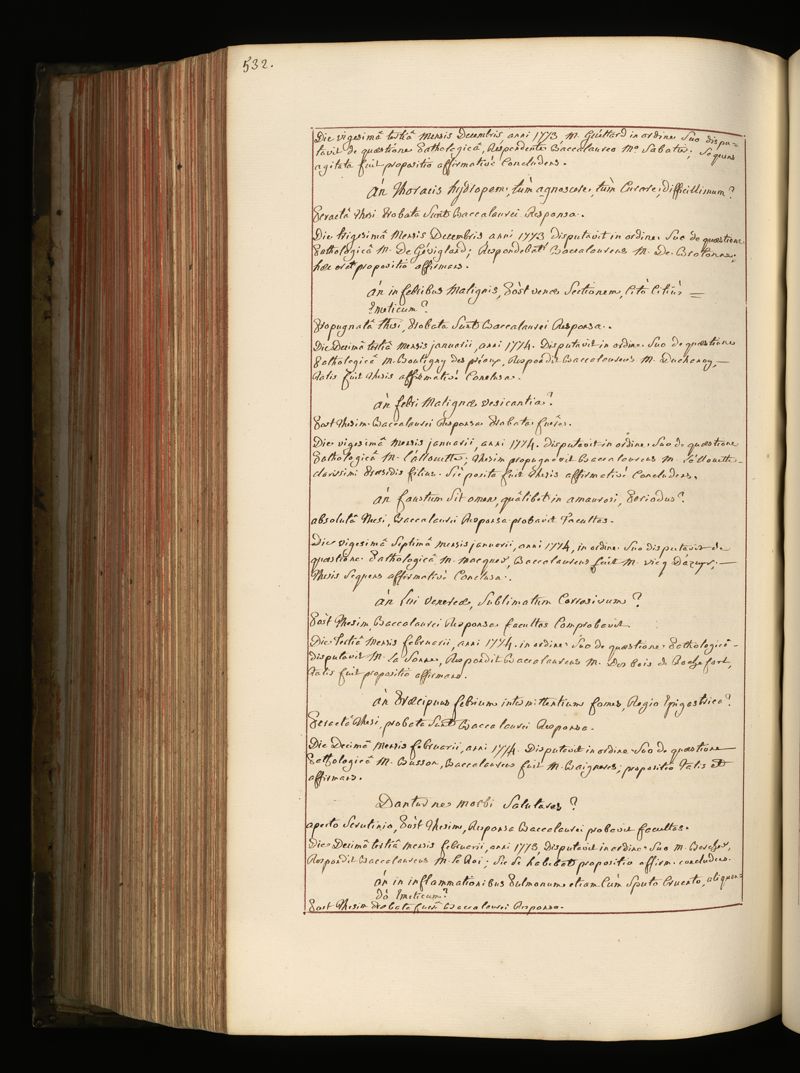 532.
Die vigesimâ tertiâ Mensis Decembris anni 1773 M. Guettard in ordine Suo dispu-
tavit de quæstione Pathologicâ, Respondente Baccalaureo Mo Sabatier; Sequens
agitata fuit propositio affirmativè Concludens.
án Thoracis hydropem, tùm agnoscere, tùm Curare, difficillimum?
Peractâ Thesi Probata Sunt Baccalaurei Responsa.
Die trigesimâ Mensis Decembris anni 1773 Disputavit in ordine Suo de quæstione
Pathologicâ M. De Gévigland; Respondebat Baccalaureus M. De Brotonne;
hæc erat propositio affirmans.
án in febribus Malignis, Pòst venæ Sectionem, Citò Citiùs =
Emeticum?
Propugnatâ Thesi, Probata Sunt Baccalaurei Responsa.
Die Decimâ tertiâ mensis januarii, anni 1774. Disputavit in ordine Suo de quæstione
Pathologicâ M. Bouttigny des préaux, Respondit Baccalaureus M. Duchanoy, —
Talis fuit Thesis affirmativè Conclusa.
án febri Malignæ vesicantia?
Post Thesim Baccalaurei Responsa Probata fuêre.
Die vigesimâ mensis januarii, anni 1774. Disputavit in ordine Suo de quæstione
Pathologicâ M. L'allouette; Thesim propugnavit Baccalaureus M. L'allouette
clarissimi Præsidis filius. Sic posita fuit Thesis affirmativè Concludens.
án faustum Sit omen, quâlibet in amaurosi, Periodus?
absolutâ Thesi, Baccalaurei Responsa probavit facultas.
Die vigesimâ Septimâ mensis januarii, anni 1774, in ordine Suo disputavit de
quæstione Pathologicâ M. macquer, Baccalaureus fuit M. vicq Dazyr; —
Thesis Sequens affirmativè Conclusa.
án Lui venereæ, Sublimatum Corrosivum?
Pòst Thesim, Baccalaurei Responsa facultas Comprobavit.
Die Tertiâ Mensis februarii, anni 1774. in ordine Suo de quæstione Pathologicâ -
disputavit M. La Sonne, Respondit Baccalaureus M. Des bois de Rochefort,
talis fuit propositio affirmans.
án Præcipuus febrium intermittentium fomes, Regio Epigastrica?
Peractâ Thesi, probata Sunt Baccalaurei Responsa.
Die Decimâ Mensis februarii, anni 1774. Disputavit in ordine Suo de quæstione
Pathologicâ M. Busson, Baccalaureus fuit M. Baigneres; propositio talis est
affirmans.
Dantur ne morbi Salutares?
aperto Scrutinio, Pòst Thesim, Responsa Baccalaurei probavit facultas.
Die Decimâ tertiâ mensis februarii, anni 1773, Disputavit in ordine Suo M. Bercher,
Respondit Baccalaureus M. le Roi; Sic Se habebat propositio affirm. concludens.
án in inflammationibus Pulmonum etiam Cùm Sputo Cruento, aliquan-
dò Emeticum?
Post Thesim Probata fuêre Baccalaurei Responsa.